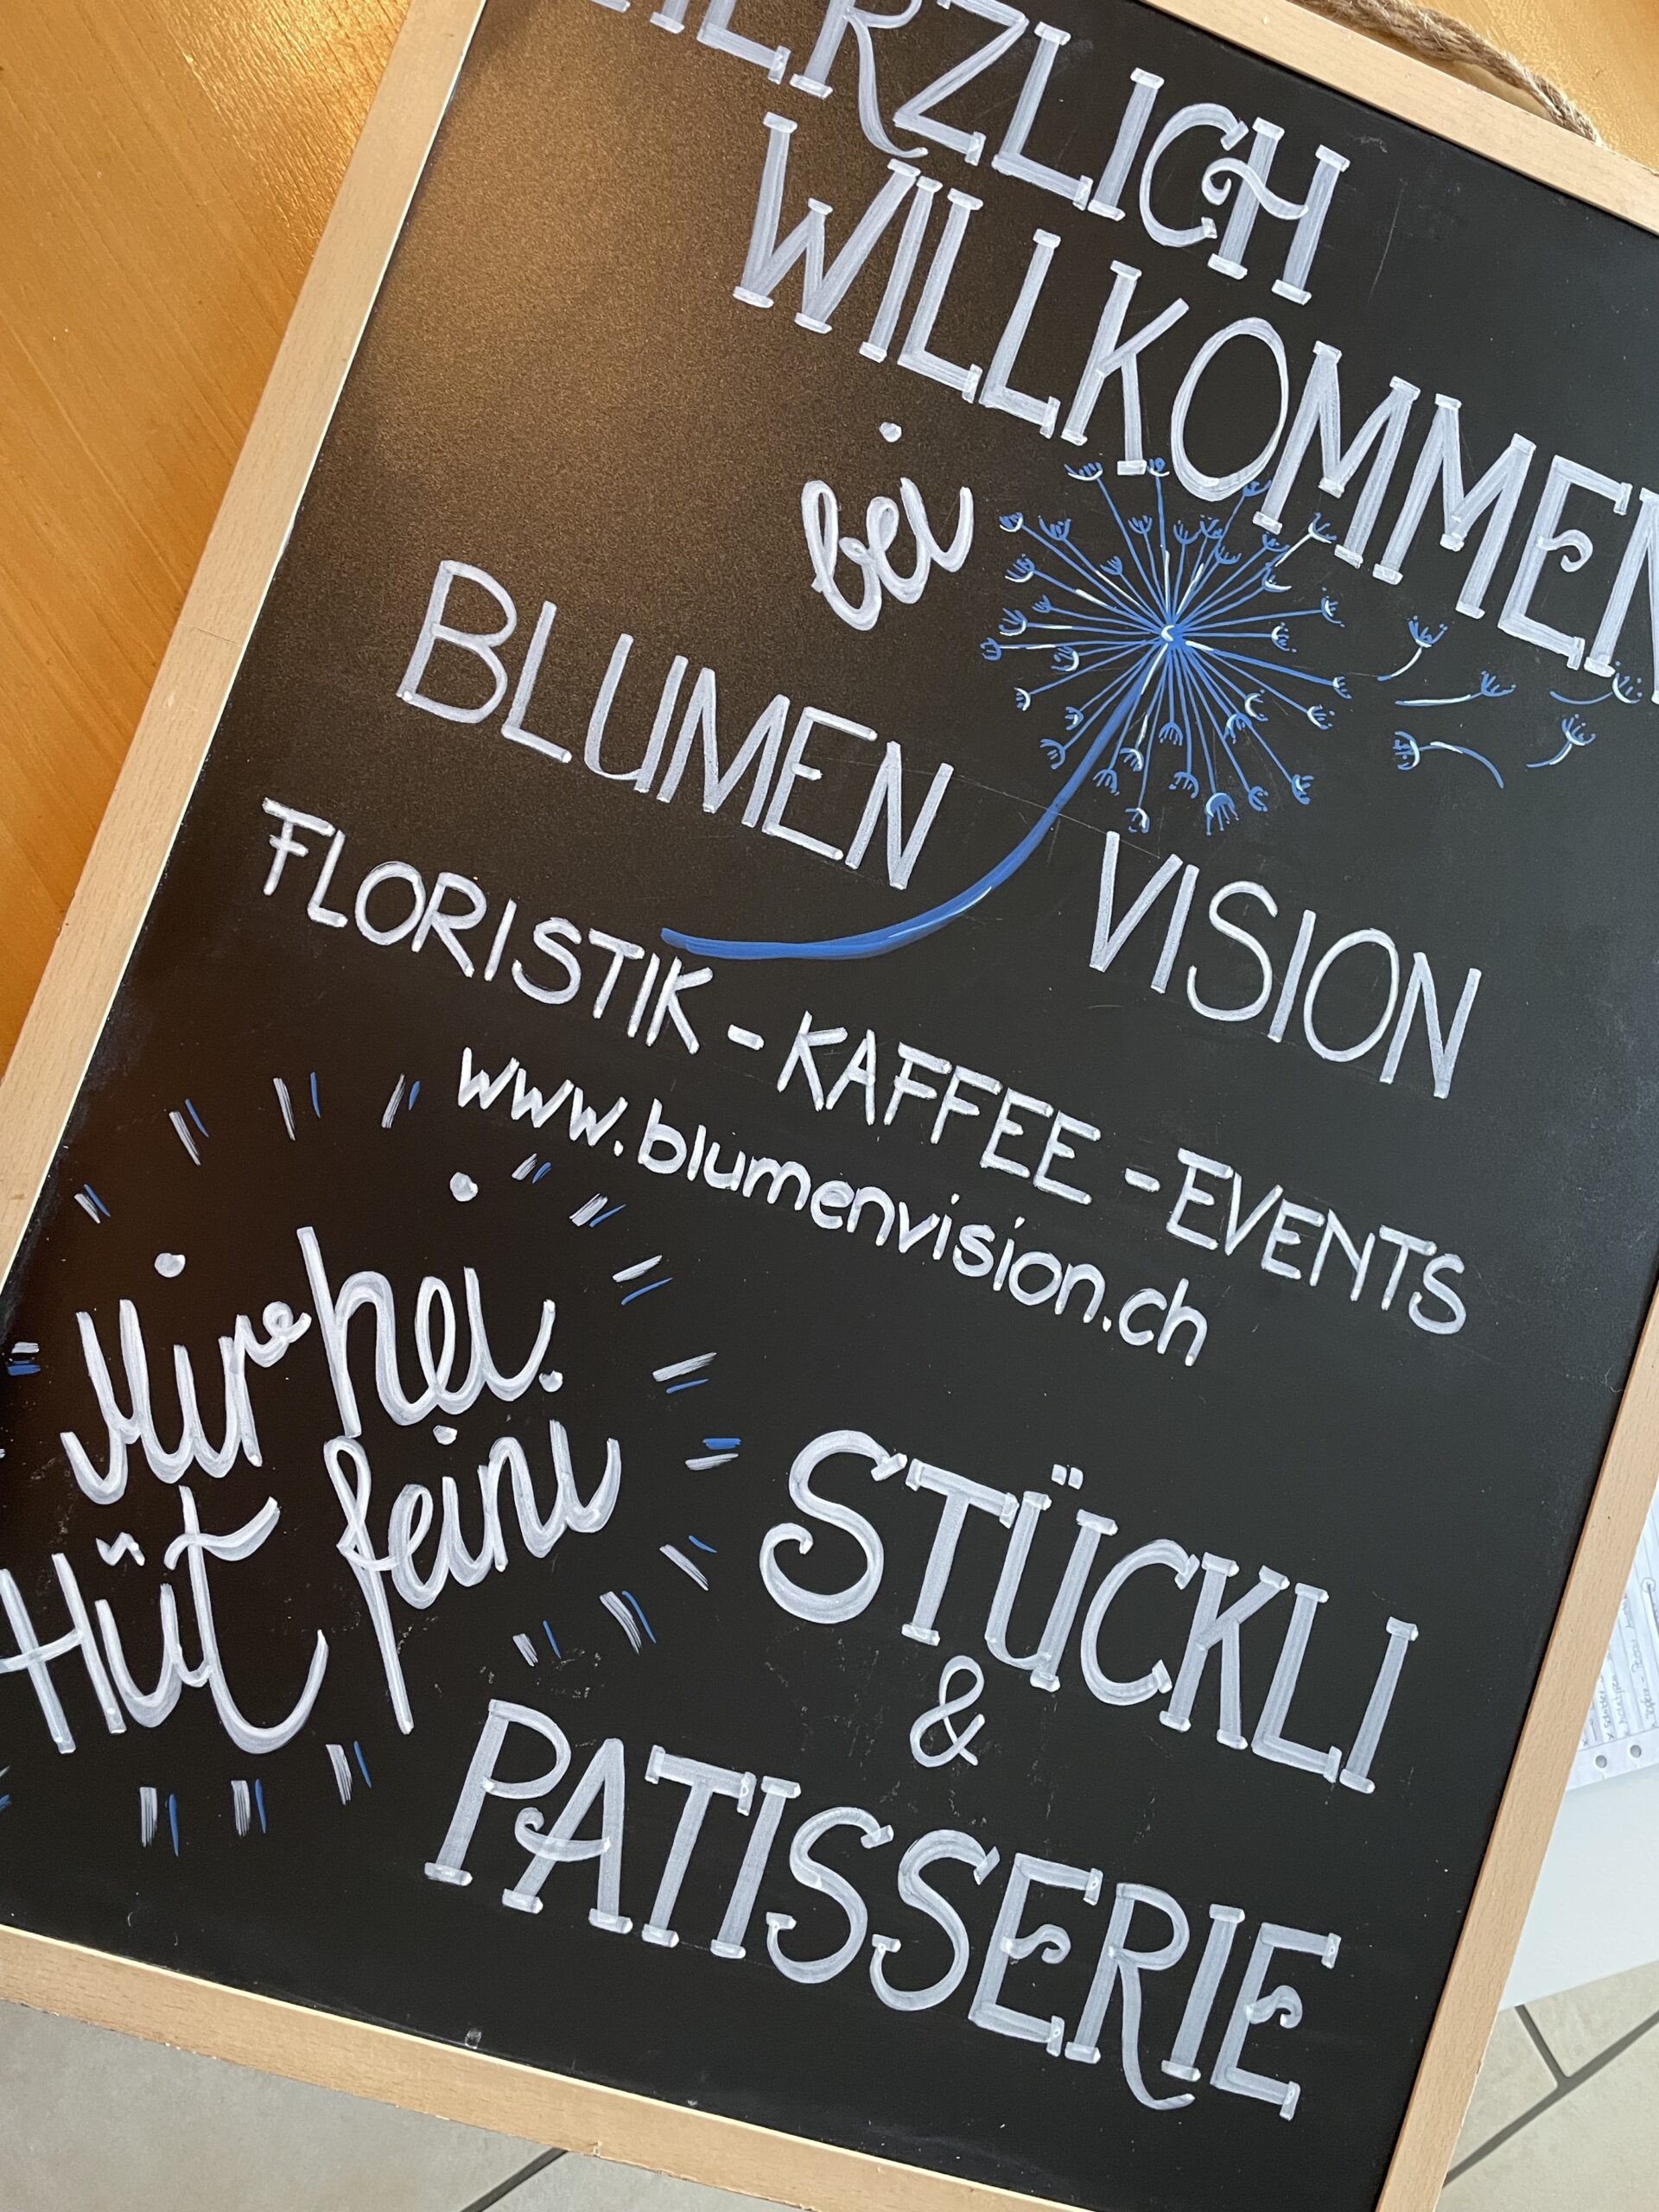 HERZLICH
WILLKOMMEN
bei
BLUMEN VISION
FLORISTIK - KAFFEE - EVENTS
www.blumenvision.ch
Mir hei
Hüt feini
STÜCKLI
&
PATISSERIE